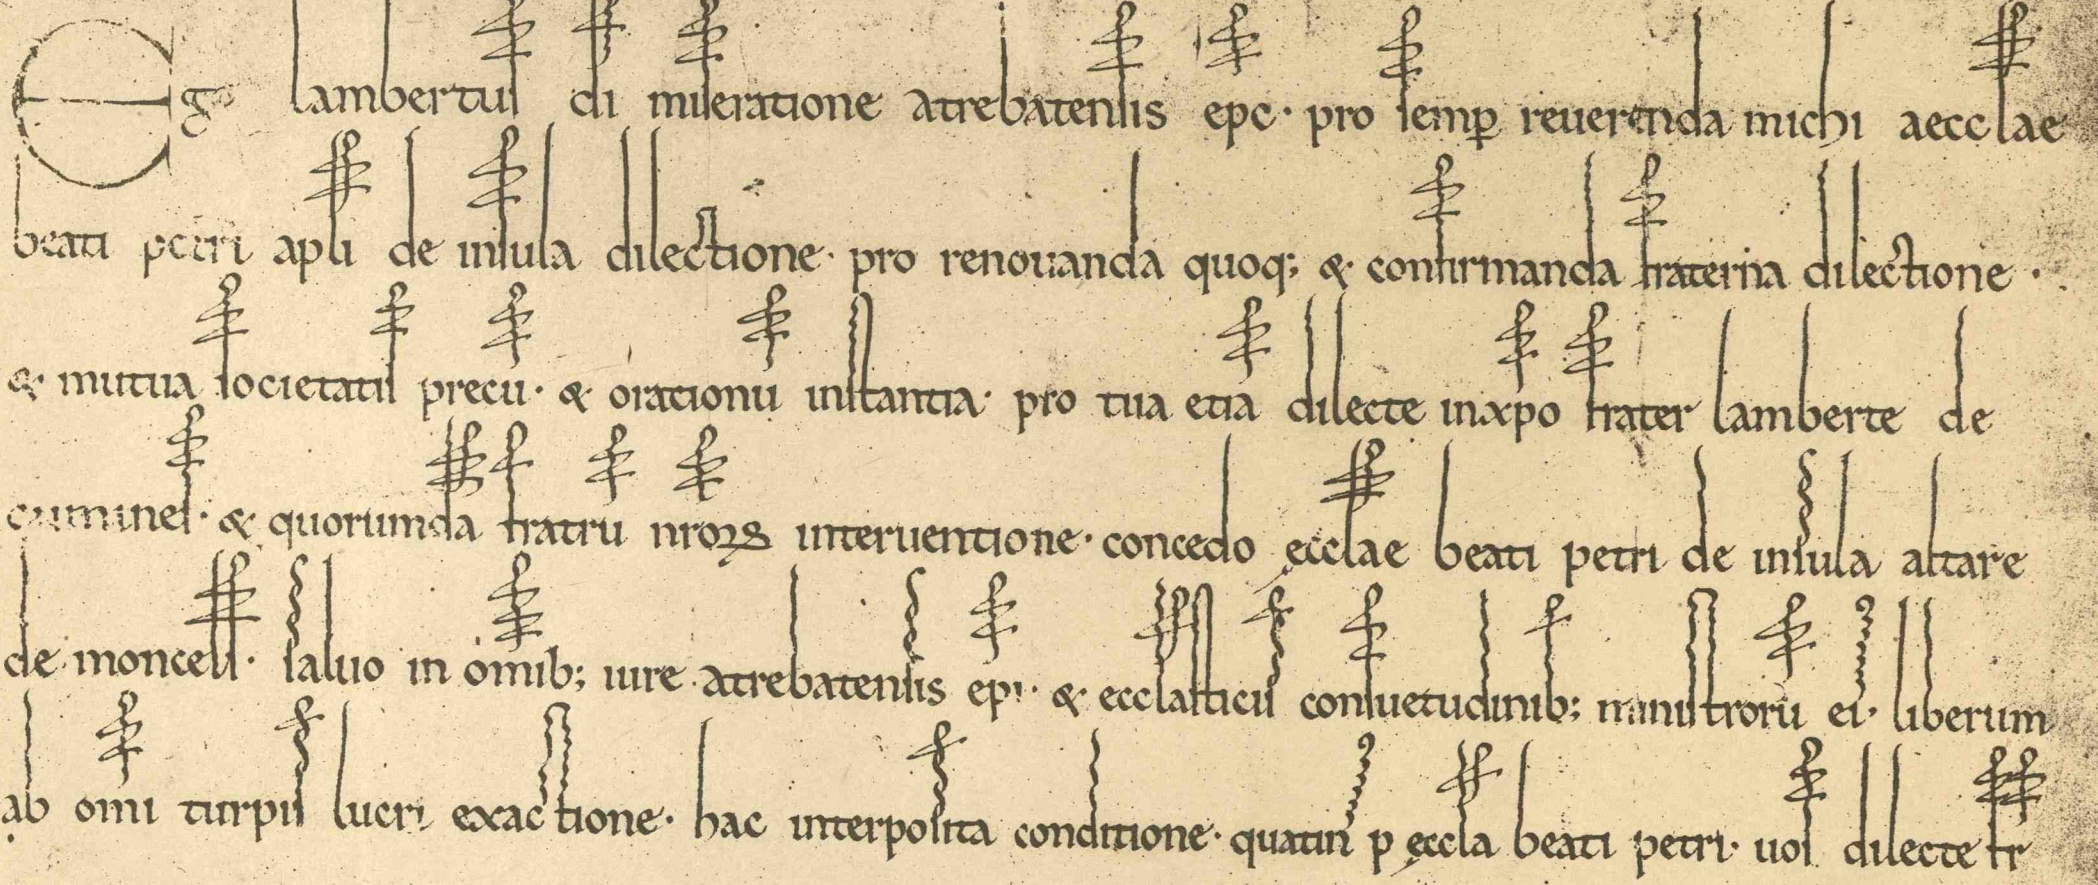 Ego lambertus di miseratione atrebatensis epc· pro semp reuerenda michi aecclae
beati petri apli de insula dilectione· pro renouanda quoq; & confirmanda fraterna dilectione·
& mutua societatis precu· & orationu instantia· pro tua etia dilecte in xpo frater lamberte de
& quorumda fratru nroꝝ interuentione· concedo ęcclae beati petri de insula altare
de moncels· saluo in omib; iure atrebatensis epi· & ecclasticis consuetudinib; ministroru ei· liberum
ab omi turpis lucri exactione· hac interposita conditione· quatin p ęccla beati petri· uos dilecte fr